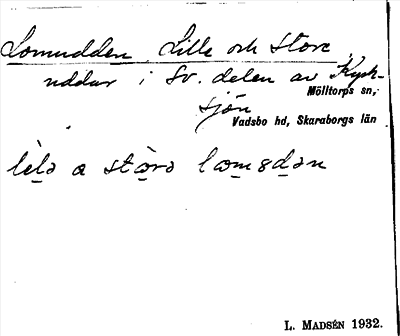 Lomudden, Lille och Store
uddar i sv. delen av Kyrk-
Mölltorps sn,
sjön
Vadsbo hd, Skaraborgs län
L. MADSÉN 1932.